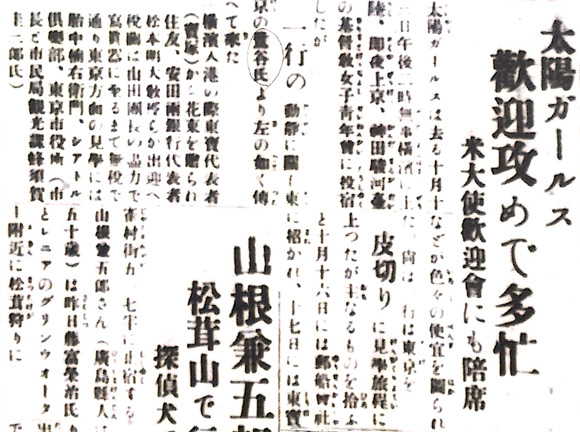 太陽ガールス
歡迎攻めで多忙
米大使歡迎會にも陪席
太陽ガールスは去る十月十
二日午後二時無事橫濱に上
陸、卽夜上京、神田駿河臺
の基督敎女子靑年會に投宿
したが
一行の 動靜に關し東
京の鷲谷氏より左の如く傳
へて來た
橫濱入港の際東寶代表者
(寶塚)から花束を贈られ
住友、安田兩銀行代表者
松本明大敎授らが出迎へ
稅關は山田團長の盡力で
寫眞器に至るまで無稅で
通り東京方面の見學には
胎中楠右衛門、シアトル
俱樂部、東京市役所(市
長と市民局觀光課蜂須賀
圭二郎氏)
などが色々の便宜を圖られ
た。尙ほ一行は東京を
皮切り に見學旅程に
上つたが主なるものを拾ふ
と十月十六日には郵船會社
に招かれ、十七日には東寶
山根兼五
松茸山で
探偵犬
街五、七半に止宿する
山根兼五郎さん(廣島縣人
五十歲)は昨日藤富榮治氏
とレニアのグリンウオータ
ー附近に松茸狩りに